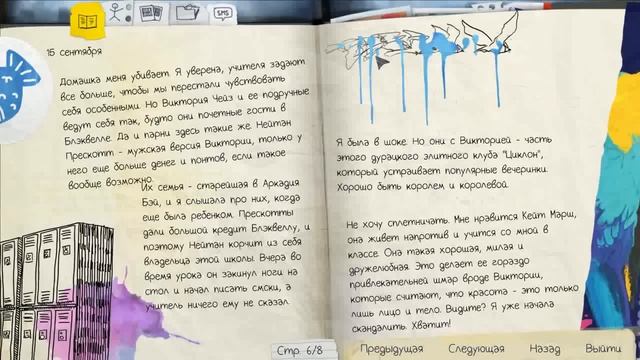 SMS
15 сентября
Домашка меня убивает. Я уверена, учителя задают
все больше, чтобы мы перестали чувствовать
себя особенными. Но Виктория Чейз и ее подручные
ведут себя так, будто они почетные гости в
Блэквелле. Да и парни здесь такие же. Нейтан
Прескотт - мужская версия Виктории, только у
него еще больше денег и понтов, если такое
вообще возможно.
Их семья - старейшая в Аркадия
Бэй, и я слышала про них, когда
еще была ребенком. Прескотты
дали большой кредит Блэквеллу, и
поэтому Нейтан корчит из себя
владельца этой школы. Вчера во
время урока он закинул ноги на
стол и начал писать смски, а
учитель ничего ему не сказал.
Я была в шоке. Но они с Викторией - часть
этого дурацкого элитного клуба "Циклон",
который устраивает популярные вечеринки.
Хорошо быть королем и королевой.
Не хочу сплетничать. Мне нравится Кейт Марш,
она живет напротив и учится со мной в
классе. Она такая хорошая, милая и
дружелюбная. Это делает ее гораздо
привлекательней шмар вроде Виктории,
которые считают, что красота - это только
лишь лицо и тело. Видите? Я уже начала
скандалить. Хватит!
Стр. 6/8
Предыдущая
Следующая
Назад
Выйти